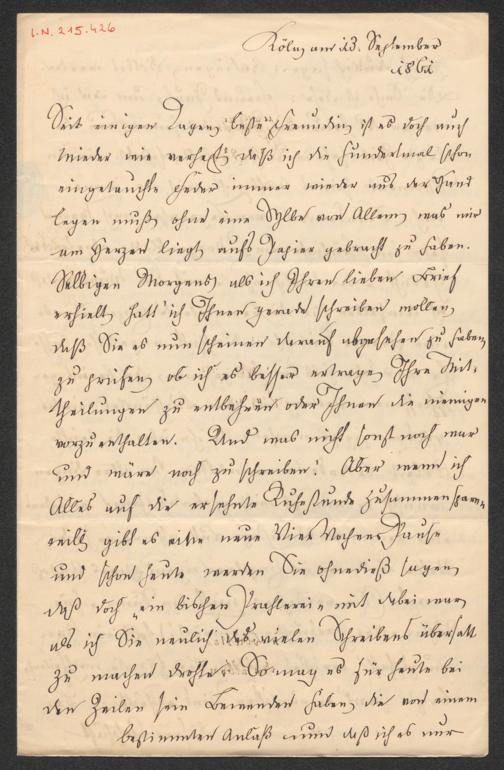 I.N. 215.426
Köln am 13. September
1861
Seit einigen Tagen, beste Freundin, ist es doch auch
wieder wie verhext, daß ich die hundertmal schon
eingetauchte Feder immer wieder aus der Hand
legen muß, ohne eine Sylbe von Allem, was mir
am Herzen liegt, aufs Papier gebracht zu haben.
Selbigen Morgens, als ich Ihren lieben Brief
erhielt, hatt' ich Ihnen gerade schreiben wollen,
daß Sie es nun scheinen darauf abgesehen zu haben,
zu prüfen, ob ich es besser ertrage, Ihre Mit-
theilungen zu entbehren oder Ihnen die meinigen
vorzuenthalten. Und was nicht sonst noch war
und wäre noch zu schreiben! Aber wenn ich
Alles auf die ersehnte Ruhestunde zusammen
will, gibt es eine neue Vier Wochen Pause
und schon heute werden Sie ohnedieß sagen,
daß doch "ein bischen Prahlerei" mit dabei war,
als ich Sie neulich des vielen Schreibens übersatt
zu machen drohte. So mag es für heute bei
den Zeilen sein Bewenden haben, die von einem
bestimmten Anlaß und daß ich es nur